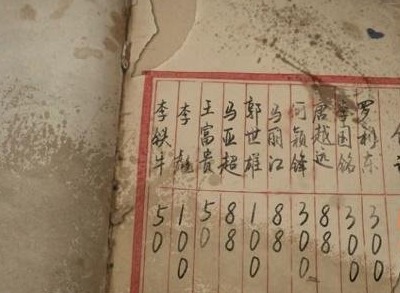 罗利东 300
李国铭 300
唐越远 88
何颖锋 300
马丽江 88
郭世雄 100
马亚超 88
王富贵 50
李 100
李铁牛 50